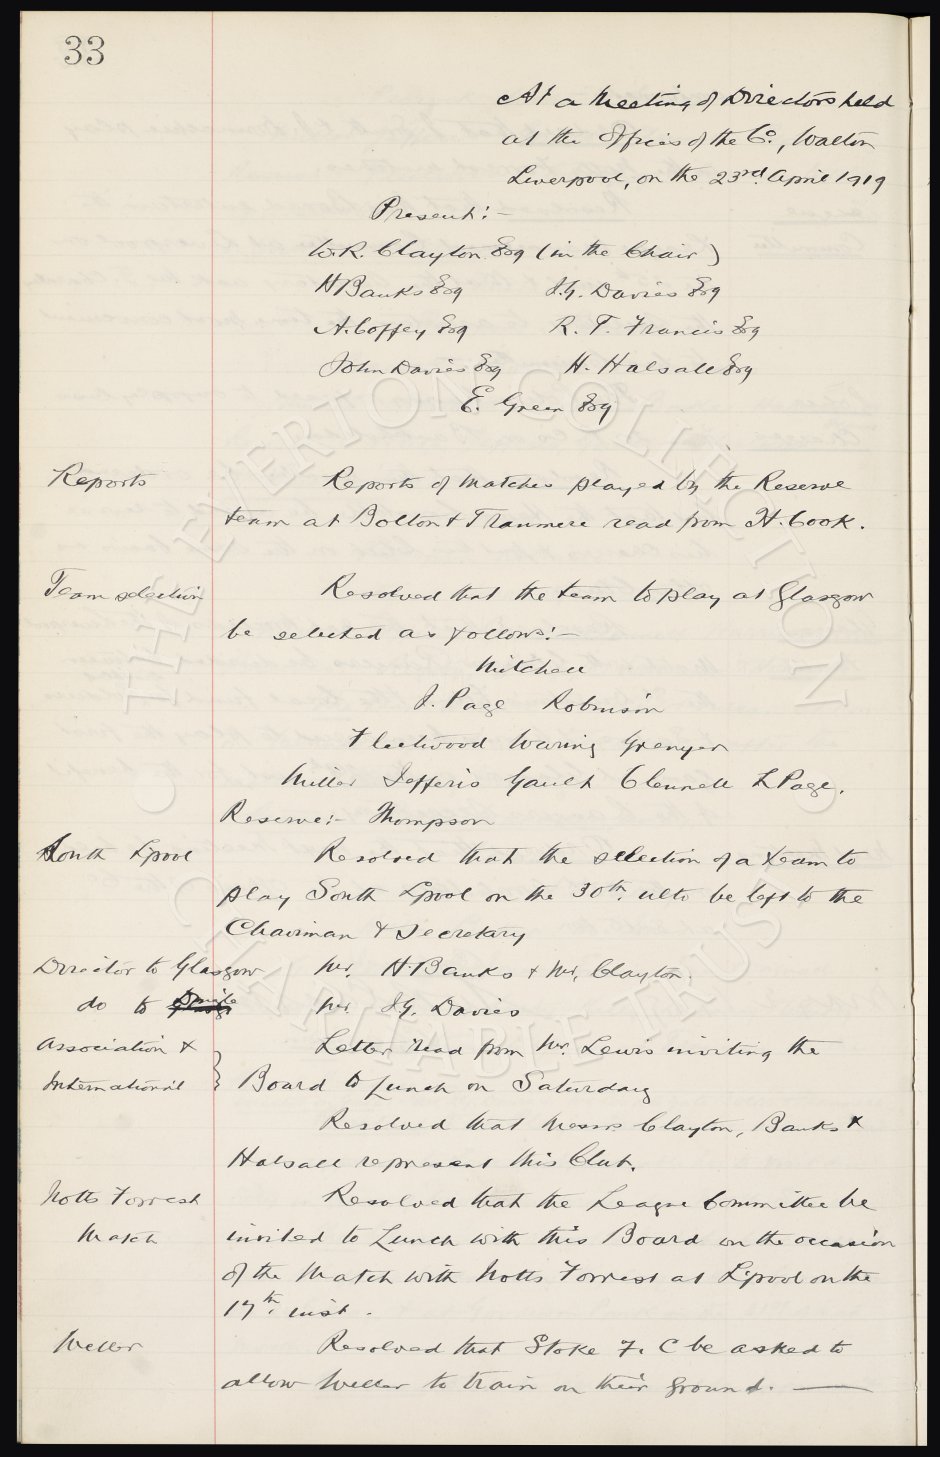 33
At a Meeting of Directors held
at the Offices of the Co., Walton
Liverpool, on the 23rd April 1919
Present:-
W.R. Clayton Esq (in the Chair)
H Banks Esq J.G. Davies Esq
A. Coffey Esq R. T. Francis Esq
John Davies Esq H. Halsall Esq
E. Green Esq
Reports Reports of Matches played by the Reserve
team at Bolton & Tranmere read from H. Cook.
Team selection Resolved that the team to play at Glasgow
be selected as follows:-
Mitchell
J. Page Robinson
Fleetwood Waring Grenyer
Miller Jefferis Gault Clennell L Page.
Reserve:- Thompson
South Lpool Resolved that the selection of a team to
play South Lpool on the 30th. ulto be left to the
Chairman & Secretary
Director to Glasgow Mr. H. Banks & Mr. Clayton.
do to Mr. J G. Davies
Association & Letter read from Mr. Lewis inviting the
International } Board to Lunch on Saturday
Resolved that Messrs Clayton, Banks &
Halsall represent this Club.
Notts Forrest Resolved that the League Committee be
Match invited to Lunch with this Board on the occasion
of the Match with Notts Forrest at L'pool on the
17th. inst.
Weller Resolved that Stoke F. C be asked to
allow Weller to train on their ground.
THE EVERTON COLLECTION
CHARITABLE TRUST